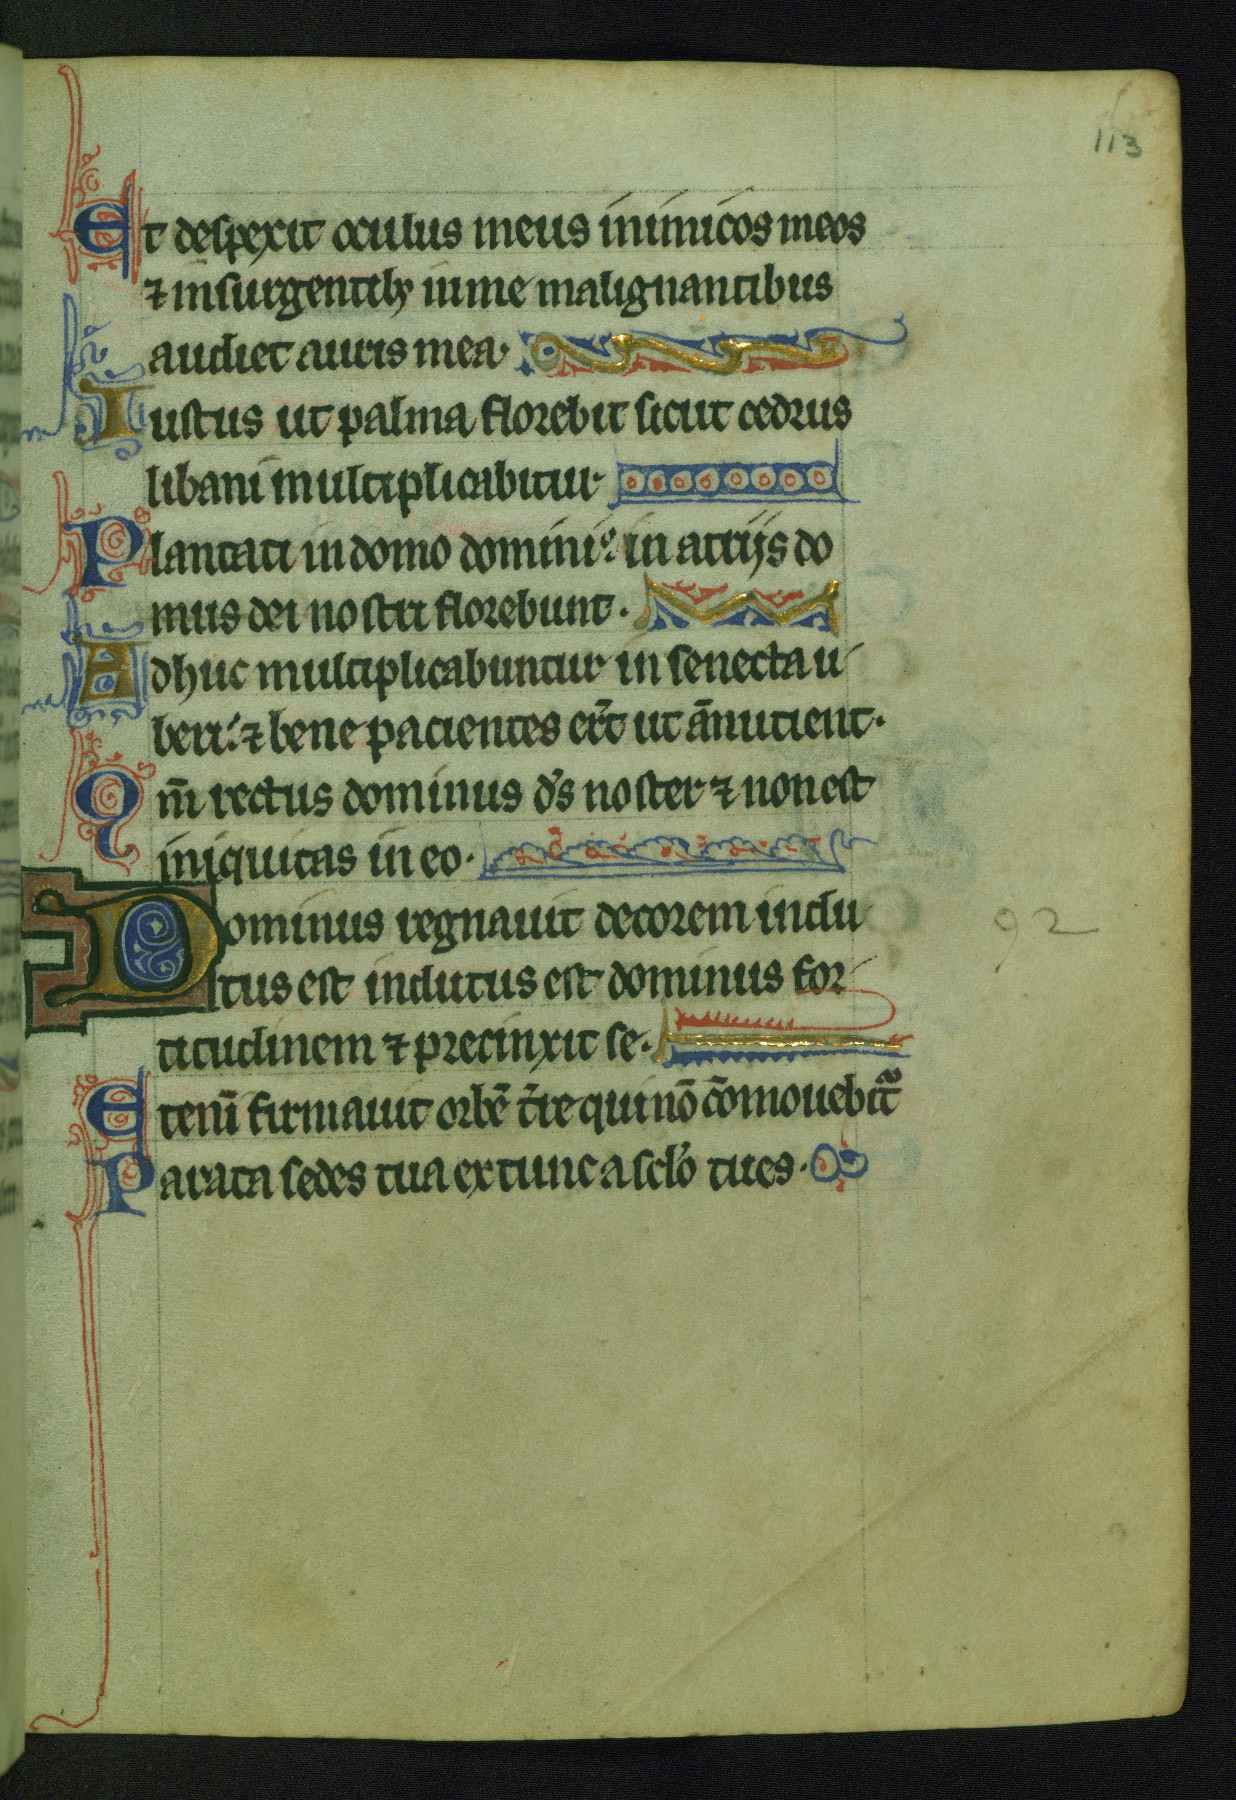 113
Et despexit oculus meus inimicos meos
⁊ insurgentibꝫ in me malignantibus
audiet auris mea·
Iustus ut palma florebit sicut cedrus
libani multiplicabitur
Plantati in domo domini: in atrijs do
mus dei nostri florebunt·
Adhuc multiplicabuntur in senecta u
beri: ⁊ bene pacientes er̄t ut ān̄utient·
Qm̄ rectus dominus d̄s noster ⁊ non est
iniquitas in eo·
Dominus regnauit decorem indu
tus est indutus est dominus for
titudinem ⁊ precinxit se·
Eteni᷑ firmauit orbē t̄re qui nō cōmouebit᷑
92
Parata sedes tua ex tunc a sclo᷑ tu es·